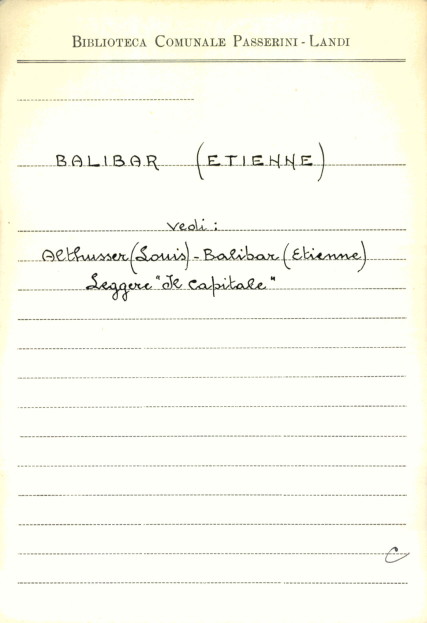 BIBLIOTECA COMUNALE PASSERINI - LANDI
BALIBAR (ETIENNE)
Vedi:
Althusser (Louis) - Balibar (Etienne)
Leggere "Il Capitale"
C